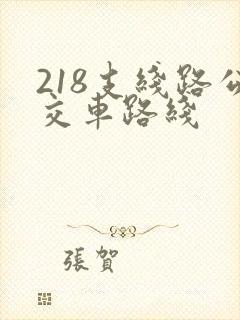 218支綫路公
交車路綫
張賀